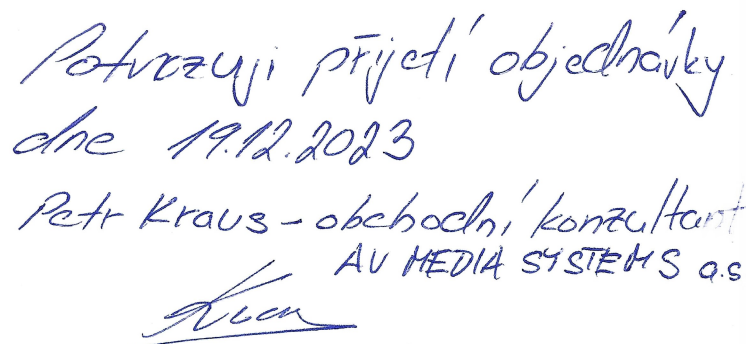 Potvrzuji přijetí objednávky
dne 19.12.2023
Petr Kraus - obchodní konzultant
AV MEDIA SYSTEMS a.s